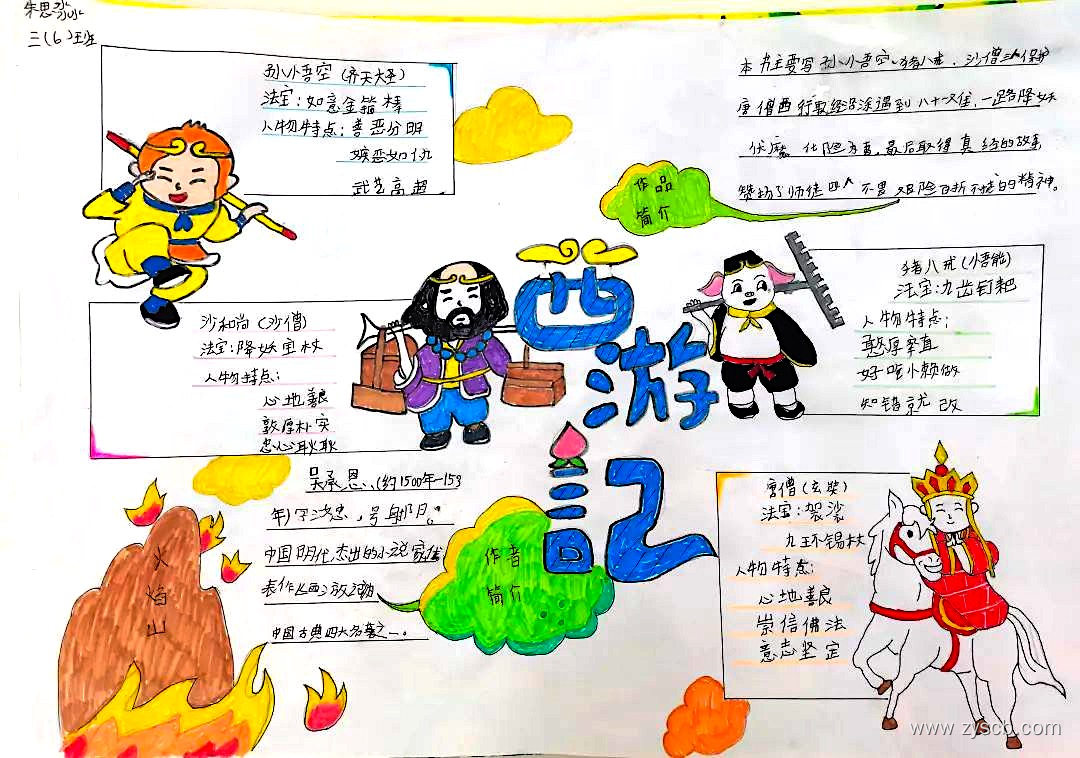 朱思淼
三(6)班
孙小悟空(齐天大圣)
法宝:如意金箍棒
人物特点:善恶分明
嫉恶如仇
武艺高超.
本书主要写孙小悟空、猪八戒、沙僧三人保护
唐僧西行取经沿途遇到八十一次难,一路降妖
伏魔 化险为夷,最后取得真经的故事
赞扬了师徒四人不畏艰险百折不挠的精神。
作品
简介
猪八戒(小悟能)
法宝:九齿钉耙
人物特点:
憨厚率直
好吃小懒做
知错就改
沙和尚(沙僧)
法宝:降妖宝杖
人物特点:
心地善良
敦厚朴实
忠心耿耿
西游記
吴承恩、(约1500年-153
年)字汝忠,号射阳。
中国明代杰出的小说家代
表作《西游记》
中国古典四大名著之一。
作者
简介
火
焰
山
唐僧(玄奘)
法宝:袈裟
九环锡杖
人物特点:
心地善良
崇信佛法
意志坚定
www.zyscb.com